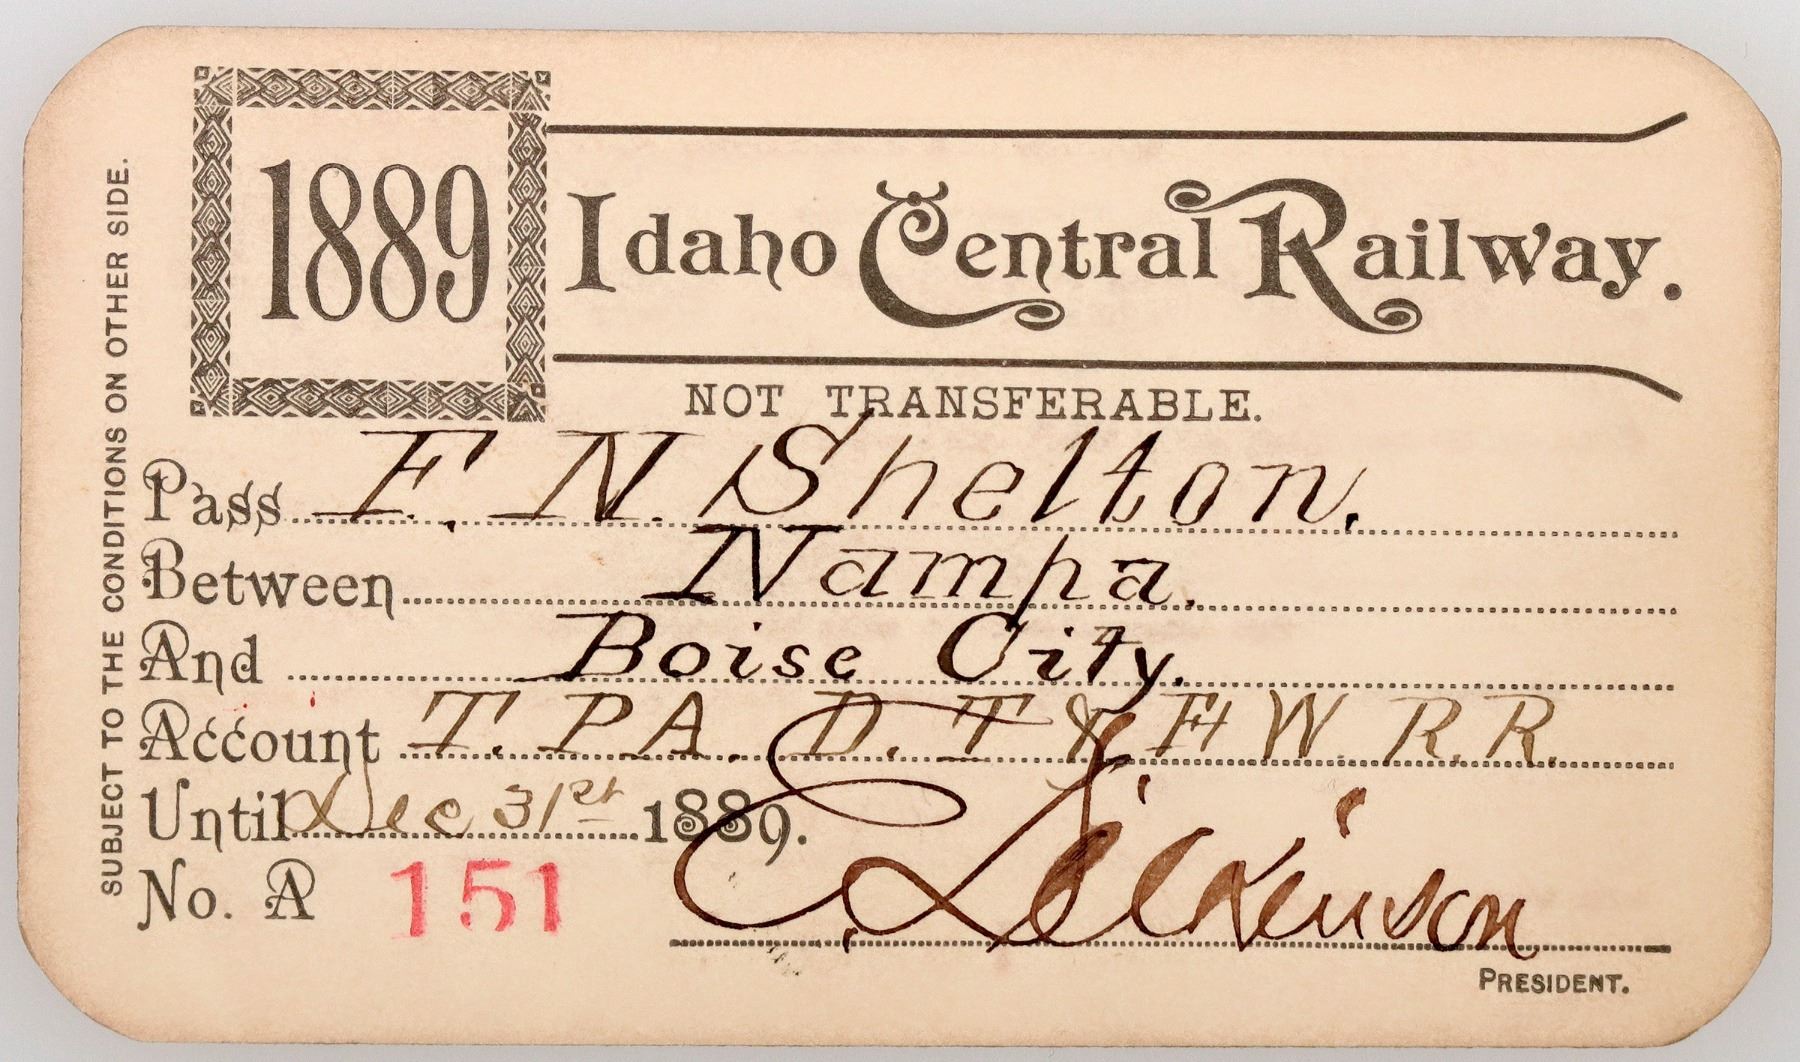 SUBJECT TO THE CONDITIONS ON OTHER SIDE.
1889
Idaho Central Railway.
NOT TRANSFERABLE.
Pass F. N. Shelton.
Between Nampa.
And Boise City.
Account T. P. A. D. T & F W R. R.
Until Dec 31st 1889.
No. A 151
C. Dickinson
PRESIDENT.